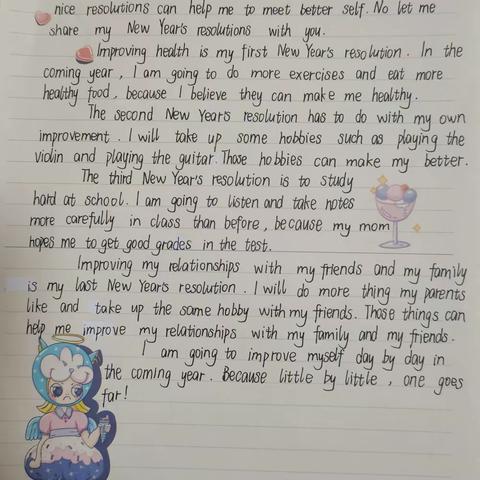 nice resolutions can help me to meet better self. No let me
share my New Year's resolutions with you.
Improving health is my first New Year's resolution. In the
coming year, I am going to do more exercises and eat more
healthy food, because I believe they can make me healthy.
The second New Year's resolution has to do with my own
improvement. I will take up some hobbies such as playing the
violin and playing the guitar. Those hobbies can make my better.
The third New Year's resolution is to study
hard at school. I am going to listen and take notes
more carefully in class than before, because my mom
hopes me to get good grades in the test.
Improving my relationships with my friends and my family
is my last New Year's resolution. I will do more thing my parents
like and take up the same hobby with my friends. Those things can
help me improve my relationships with my family and my friends.
I am going to improve myself day by day in
the coming year. Because little by little, one goes
far!